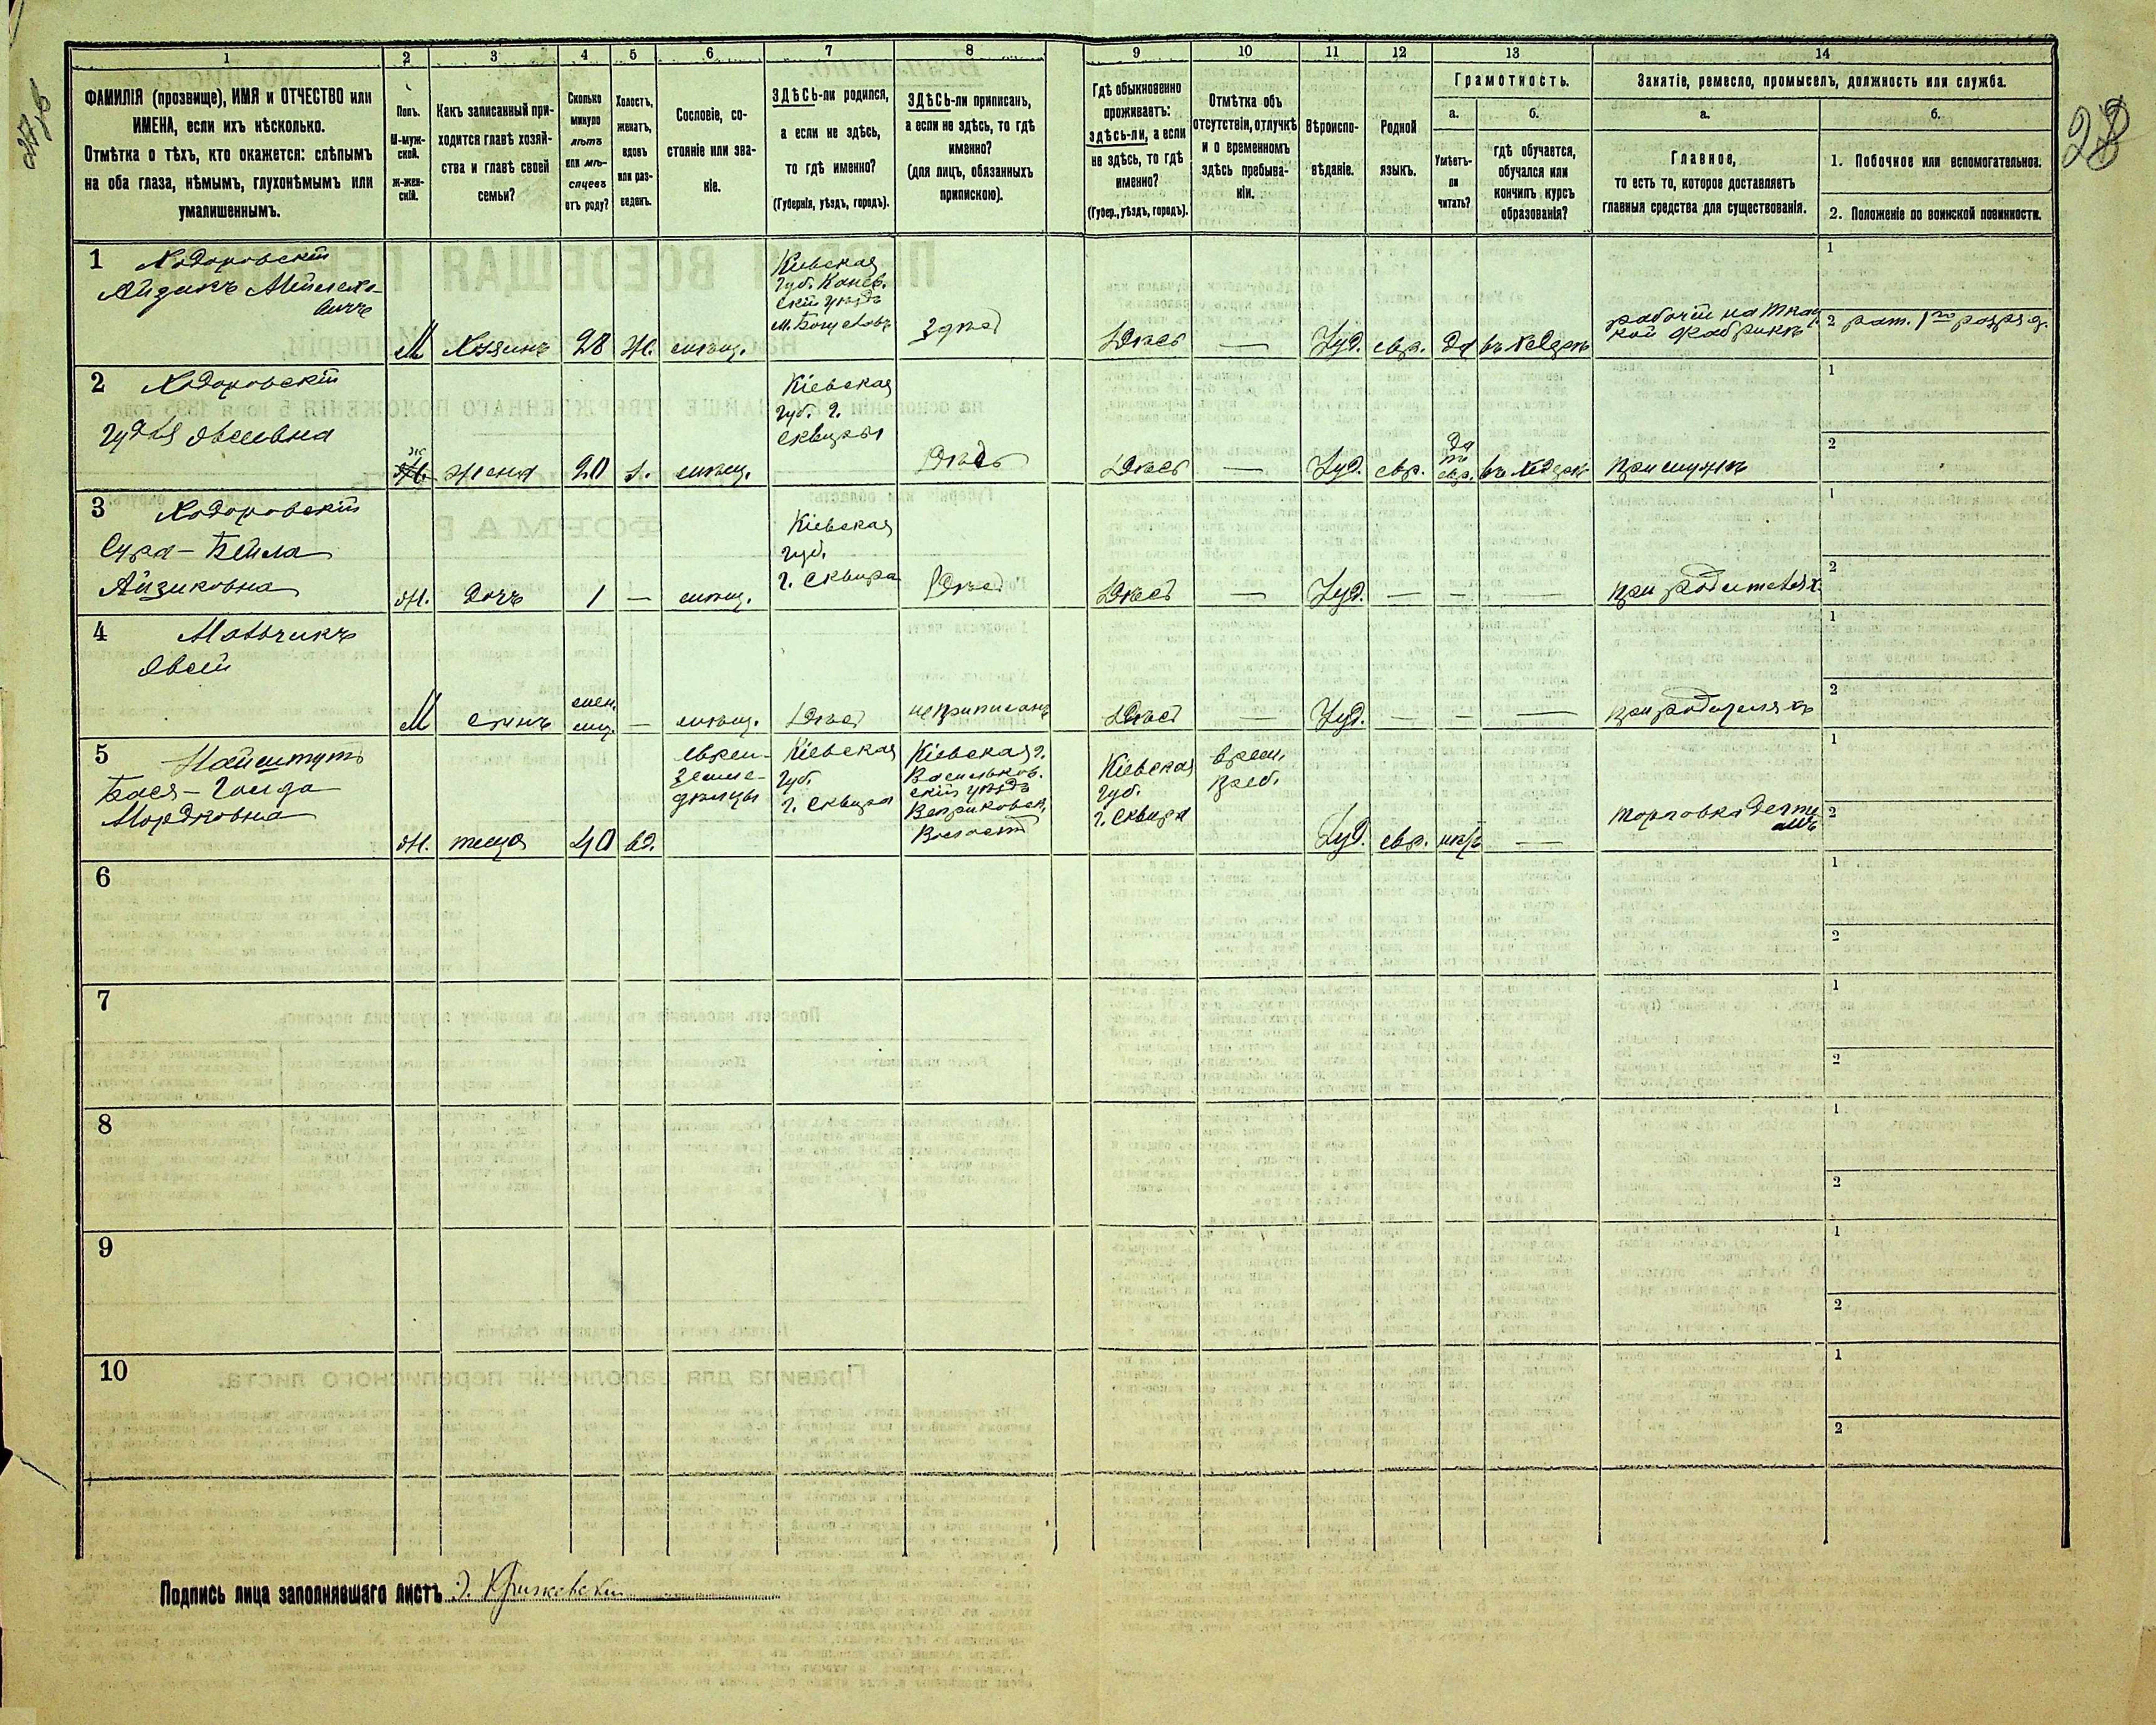 28
1 2 3 4 5 6 7 8 9 10 11 12 13 14
ФАМИЛІЯ (прозвище), ИМЯ и ОТЧЕСТВО или
ИМЕНА, если ихъ нѣсколько.
Отмѣтка о тѣхъ, кто окажется: слѣпымъ
на оба глаза, нѣмымъ, глухонѣмымъ или
умалишеннымъ.
Полъ.
М-муж-
ской.
ж-жен-
скій.
Какъ записанный при-
ходится главѣ хозяй-
ства и главѣ своей
семьи?
Сколько
минуло
лѣтъ
или мѣ-
сяцевъ
отъ роду?
Холостъ,
женатъ,
вдовъ
или раз-
веденъ.
Сословіе, со-
стояніе или зва-
ніе.
ЗДѢСЬ-ли родился,
а если не здѣсь,
то гдѣ именно?
(Губернія, уѣздъ, городъ).
ЗДѢСЬ-ли приписанъ,
а если не здѣсь, то гдѣ
именно?
(для лицъ, обязанныхъ
припискою).
Гдѣ обыкновенно
проживаетъ:
здѣсь-ли, а если
не здѣсь, то гдѣ
именно?
(Губер., уѣздъ, городъ).
Отмѣтка объ
отсутствіи, отлучкѣ
и о временномъ
здѣсь пребыва-
ніи.
Вѣроиспо-
вѣданіе.
Родной
языкъ.
Грамотность.
а.
Умѣетъ-
ли
читать?
б.
гдѣ обучается,
обучался или
кончилъ курсъ
образованія?
Занятіе, ремесло, промыселъ, должность или служба.
а.
Главное,
то есть то, которое доставляетъ
главныя средства для существованія.
б.
1. Побочное или вспомогательное.
2. Положеніе по воинской повинности.
1 Ходоровскій
Айзикъ
М Хозяинъ 28 Ж. мѣщ.
Кіевская
губ. Канев.
скій уѣздъ
м. Богуславъ
Здѣсь
Здѣсь — Іуд. евр. да въ хедерѣ
рабочій на ткац
кой фабрикѣ
1
2 рат. 1го разряд.
2 Ходоровскій
Явсеевна
ж жена 20 з. мѣщ.
Кіевская
губ. г.
Сквиры
Здѣсь
Здѣсь — Іуд. евр. да по евр. въ хедерѣ
при мужѣ
1
2
3 Ходоровскій
Сура-Бейла
Айзиковна
Ж. дочь 1 — мѣщ.
Кіевская
губ.
г. Сквира
Здѣсь
Здѣсь — Іуд. — — —
при родителях.
1
2
4 Мальчикъ
Явсей
М сынъ — мѣщ. Здѣсь не приписанъ
Здѣсь — Іуд. — — —
при родителяхъ
1
2
5
Бася-
Мордковна
Ж. теща 40 вд.
евреи-
земле-
дѣльцы
Кіевская
губ.
г. Сквира
Кіевская г.
Васильков.
скій уѣздъ
Веприковск.
Волости
Кіевская
губ.
г. Сквира
врем.
преб.
Іуд. евр. нѣтъ —
торговка
1
2
6
1
2
7
1
2
8
1
2
9
1
2
10
1
2
Подпись лица заполнявшаго листъ